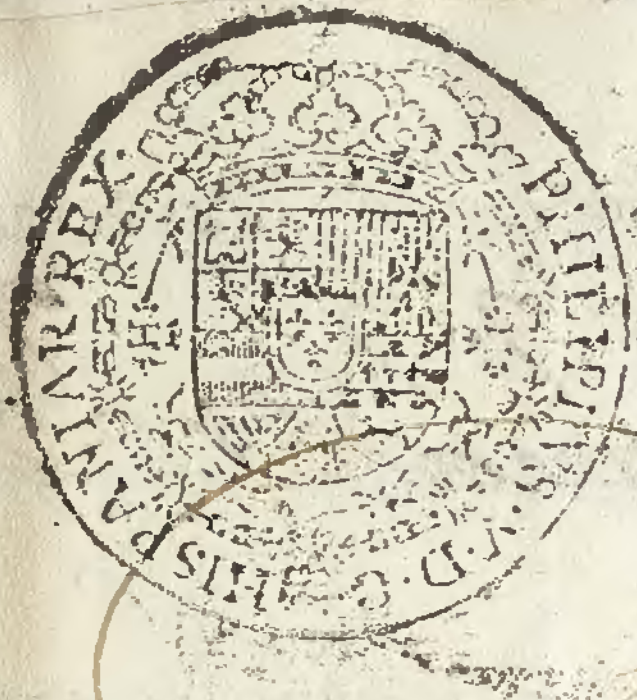 PHILIPPUS·V·D·G·HISPANIAR·REX·